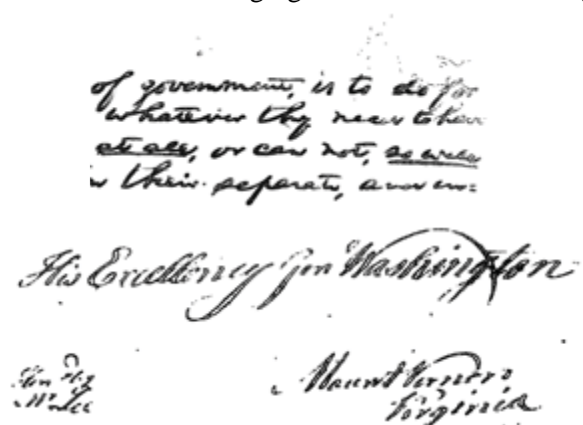 of government, is to do for
whatever they need to have
at all, or can not, so well
their separate, and in=
His Excellency Gen Washington
Mount Vernon
Virginia